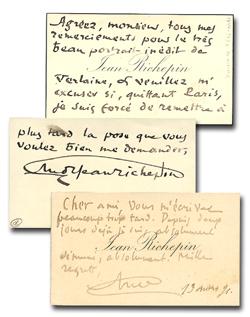 Agréez, monsieur, tous mes
remerciements pour le très
beau portrait inédit de
Jean Richepin
Verlaine, & veuillez m'
excuser si, quittant Paris,
je suis forcé de remettre à
plus tard la pose que vous
voulez bien me demander.
Jean Richepin
Cher ami, vous m'écrivez
beaucoup trop tard. Depuis
jours déjà je suis absolument
Jean Richepin
absolument. Mille
regrets.
13 mars 91.